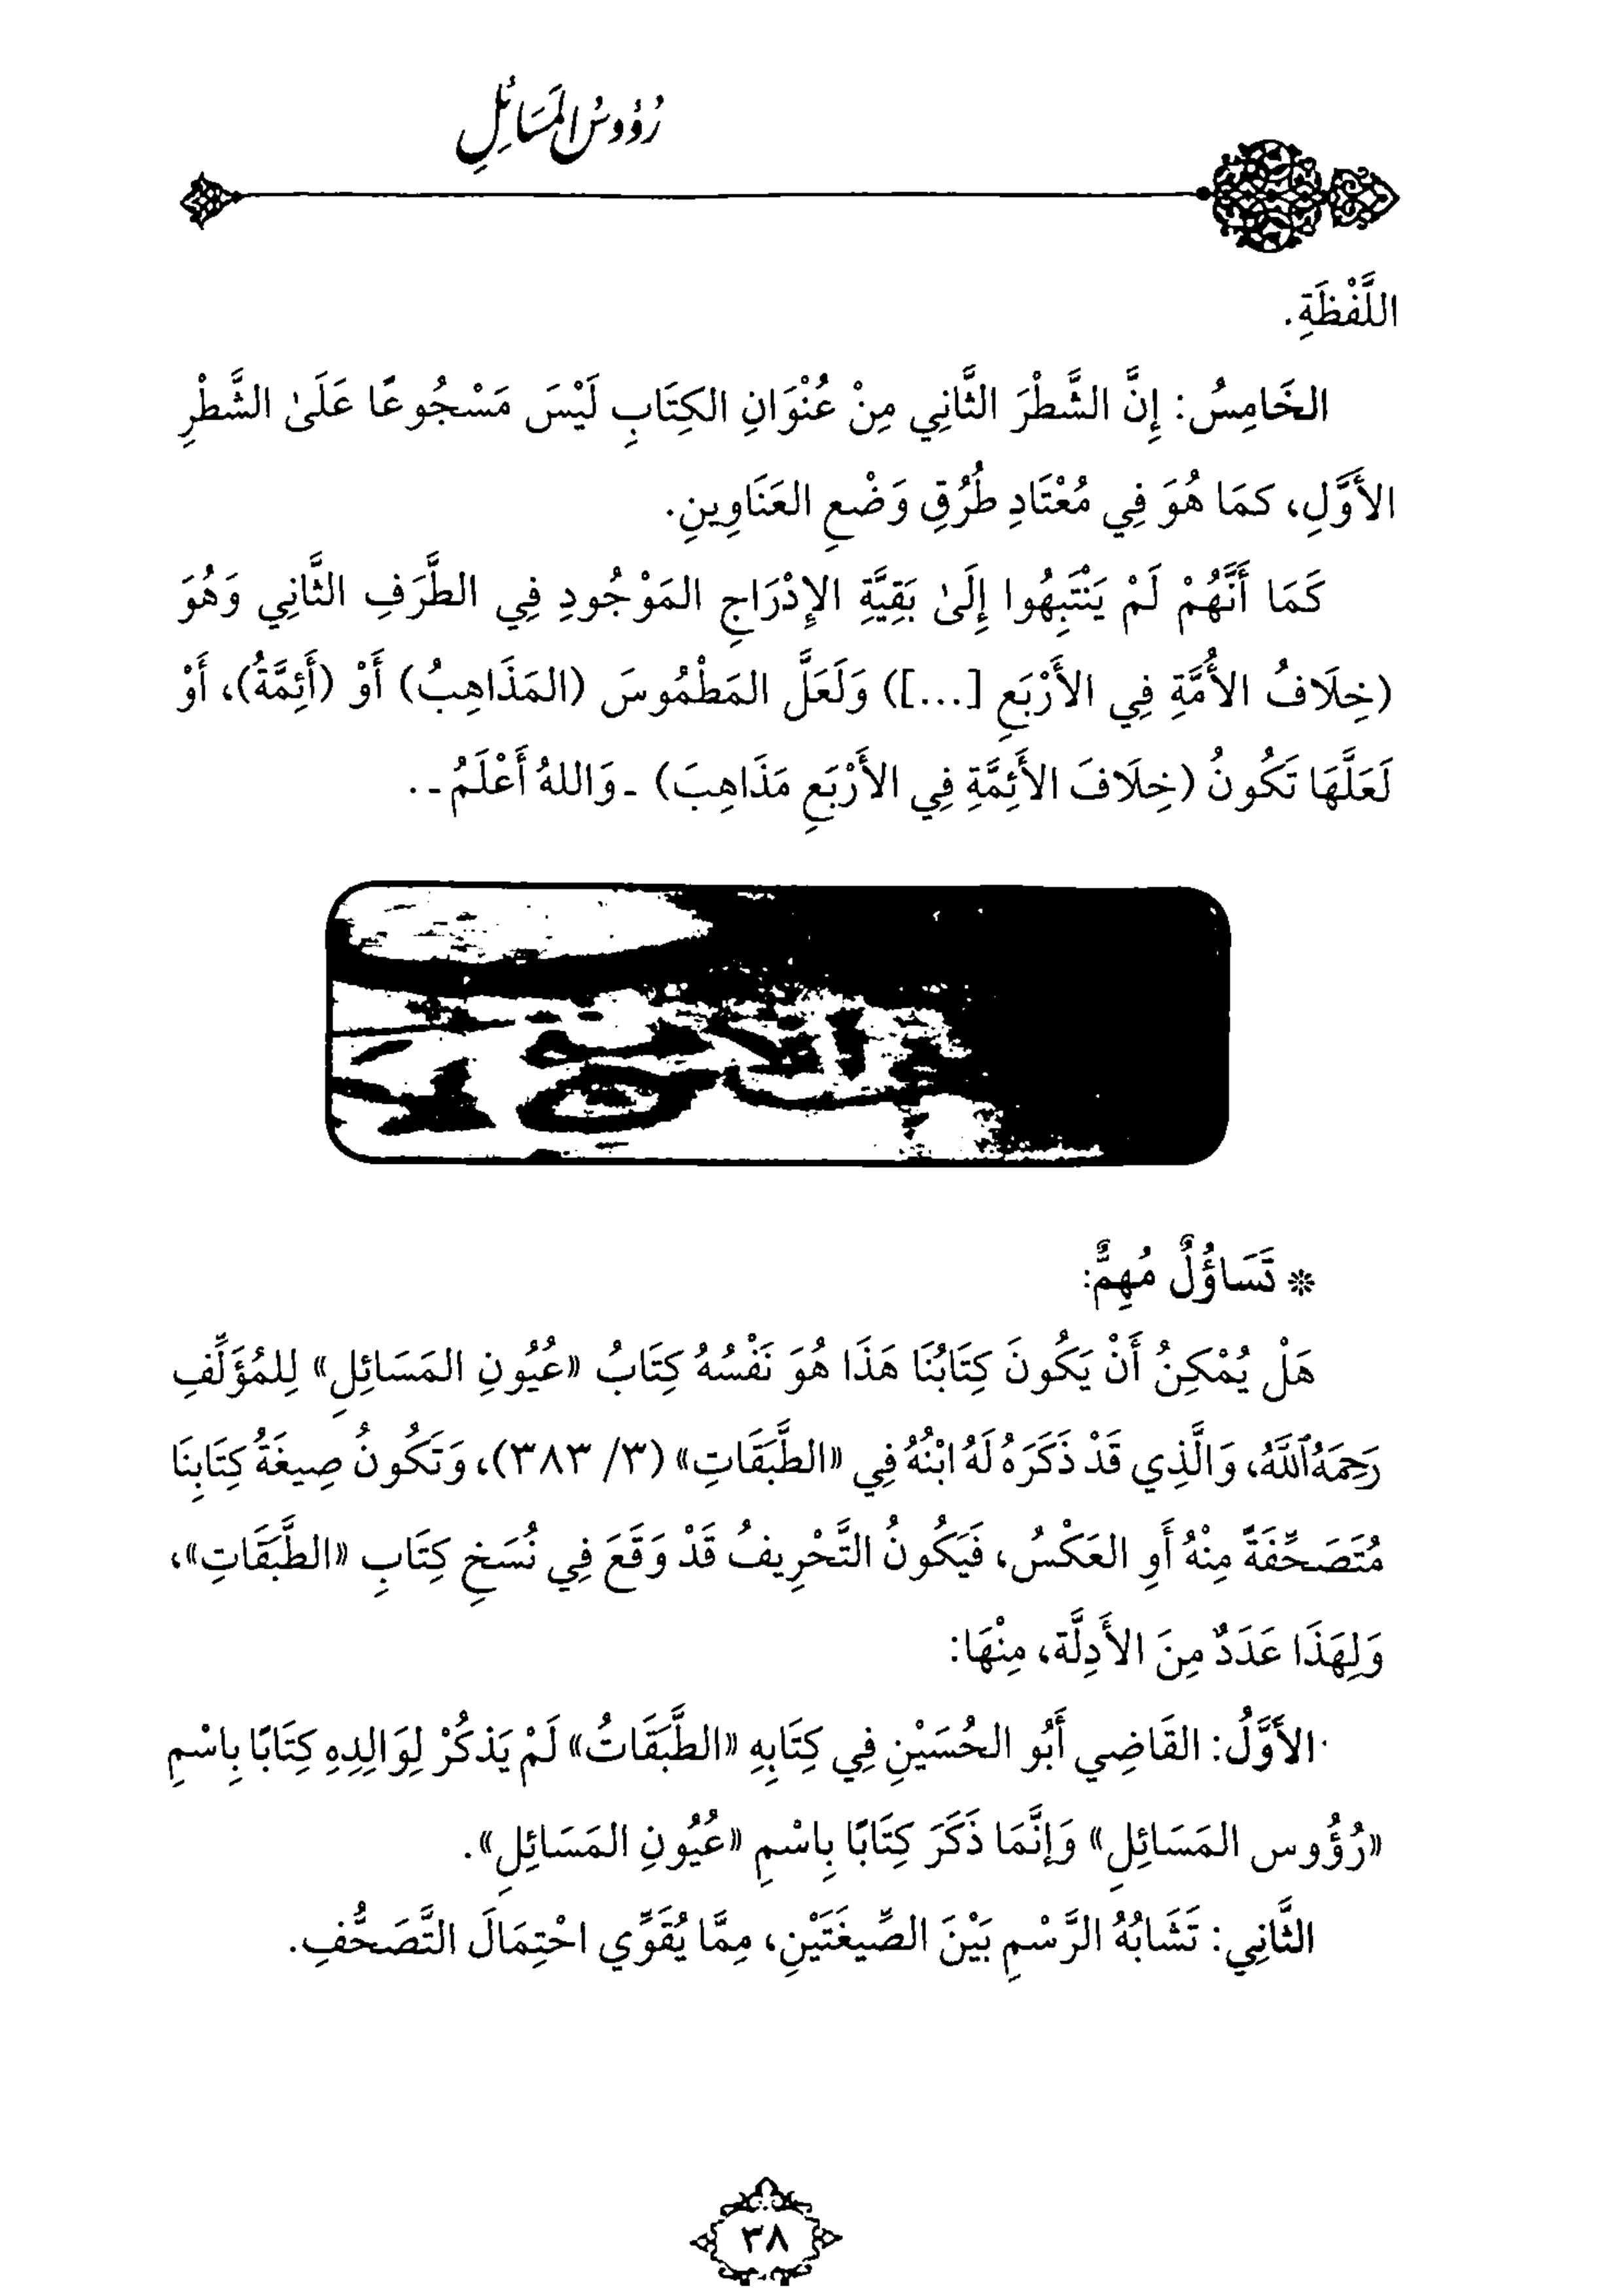 رُؤُوسُ المَسَائِلِ
اللَّفْظَةِ.
الخَامِسُ: إِنَّ الشَّطْرَ الثَّانِي مِنْ عُنْوَانِ الكِتَابِ لَيْسَ مَسْجُوعًا عَلَىٰ الشَّطْرِ
الأَوَّلِ، كمَا هُوَ فِي مُعْتَادِ طُرُقِ وَضْعِ العَنَاوِينِ.
كَمَا أَنَّهُمْ لَمْ يَنْتَبِهُوا إِلَىٰ بَقِيَّةِ الإِدْرَاجِ المَوْجُودِ فِي الطَّرَفِ الثَّانِي وَهُوَ
(خِلَافُ الأُمَّةِ فِي الأَرْبَعِ [...]) وَلَعَلَّ المَطْمُوسَ (المَذَاهِبُ) أَوْ (أَئِمَّةُ)، أَوْ
لَعَلَّهَا تَكُونُ (خِلَافَ الأَئِمَّةِ فِي الأَرْبَعِ مَذَاهِبَ) ـ وَاللهُ أَعْلَمُ ـ .
* تَسَاؤُلٌ مُهِمٌّ:
هَلْ يُمْكِنُ أَنْ يَكُونَ كِتَابُنَا هَذَا هُوَ نَفْسُهُ كِتَابُ «عُيُونِ المَسَائِلِ» لِلمُؤَلِّفِ
رَحِمَهُ ٱللَّهُ، وَالَّذِي قَدْ ذَكَرَهُ لَهُ ابْنُهُ فِي «الطَّبَقَاتِ» (٣/ ٣٨٣)، وَتَكُونُ صِيغَةُ كِتَابِنَا
مُتَصَحِّفَةً مِنْهُ أَوِ العَكْسُ، فَيَكُونُ التَّحْرِيفُ قَدْ وَقَعَ فِي نُسَخِ كِتَابِ «الطَّبَقَاتِ»،
وَلِهَذَا عَدَدٌ مِنَ الأَدِلَّة، مِنْهَا:
الأَوَّلُ: القَاضِي أَبُو الحُسَيْنِ فِي كِتَابِهِ «الطَّبَقَاتُ» لَمْ يَذكُرْ لِوَالِدِهِ كِتَابًا بِاسْمِ
«رُؤُوس المَسَائِلِ» وَإنَّمَا ذَكَرَ كِتَابًا بِاسْمِ «عُيُونِ المَسَائِلِ».
الثَّانِي: تَشَابُهُ الرَّسْمِ بَيْنَ الصِّيغَتَيْنِ، مِمَّا يُقَوِّي احْتِمَالَ التَّصَحُّفِ.
٣٨